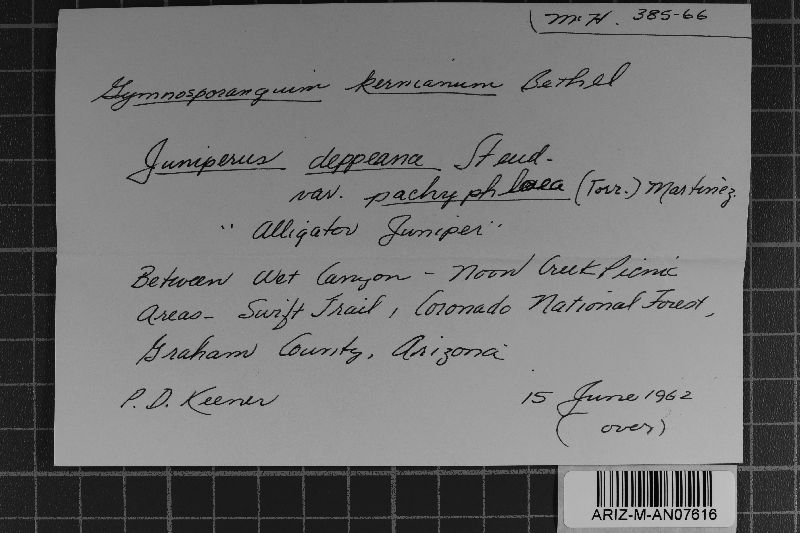 McH. 385-66
Gymnosporangium kernianum Bethel
Juniperus deppeana Steud.
var. pachyphloea (Torr.) Martinez.
"Alligator Juniper"
Between Wet Canyon - Noon Creek Picnic
Areas - Swift Trail, Coronado National Forest,
Graham County, Arizona
P. D. Keener 15 June 1962
(over)
ARIZ-M-AN07616